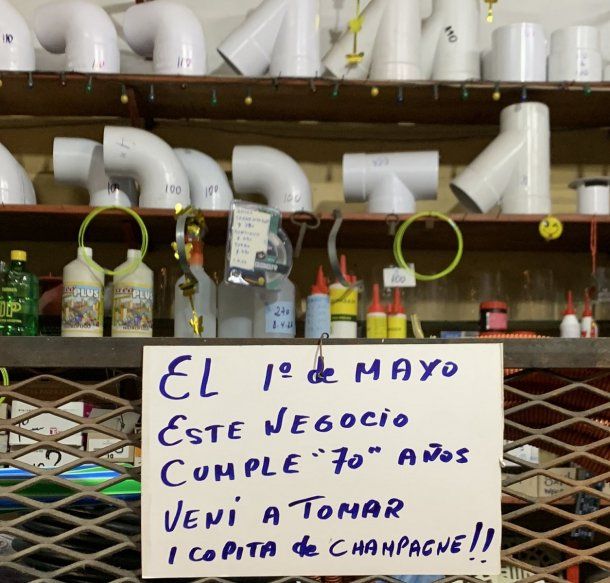 110
110
110
110
100
100
100
100
100
270
PLUS
PLUS
EL 1º de MAYO
ESTE NEGOCIO
CUMPLE "70" AÑOS
VENI A TOMAR
1 COPITA de CHAMPAGNE!!